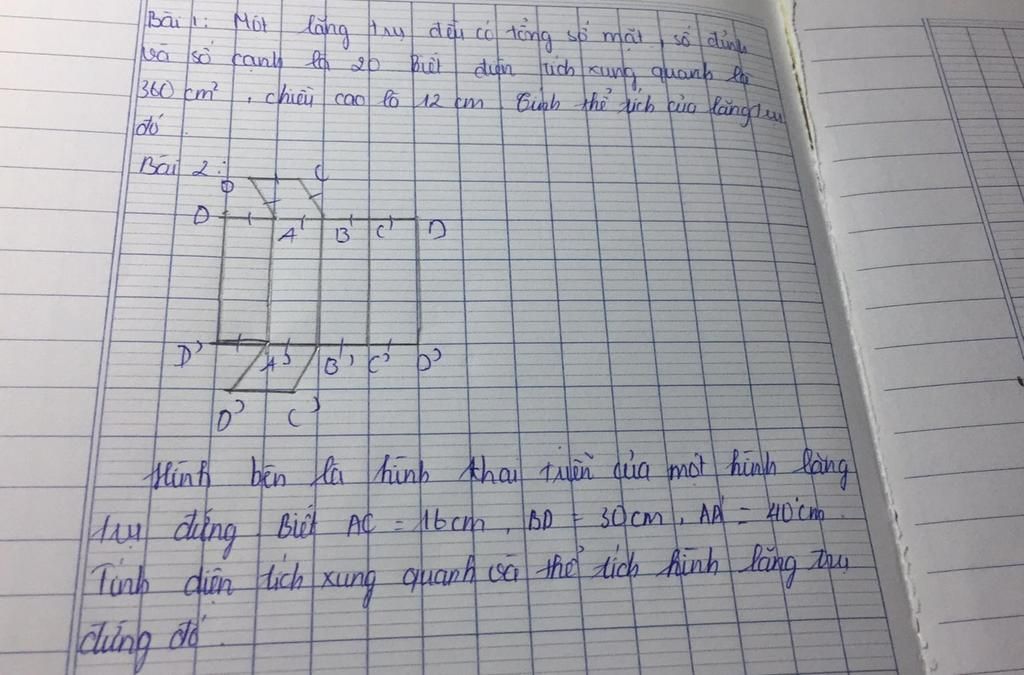 Bài 1: Một lăng trụ đều có tổng số mặt, số đỉnh
và số cạnh là 20 Biết diện tích xung quanh là
360 cm², chiều cao là 12 cm. Tính thể tích của lăng trụ
đó.
Bài 2:
D C
D A' B C' D
D' A' B' C' D'
D' C'
Hình bên là hình khai triển của một hình lăng
trụ đứng. Biết AC = 16cm, BD = 30cm, AA' = 40cm.
Tính diện tích xung quanh và thể tích hình lăng trụ
đứng đó.